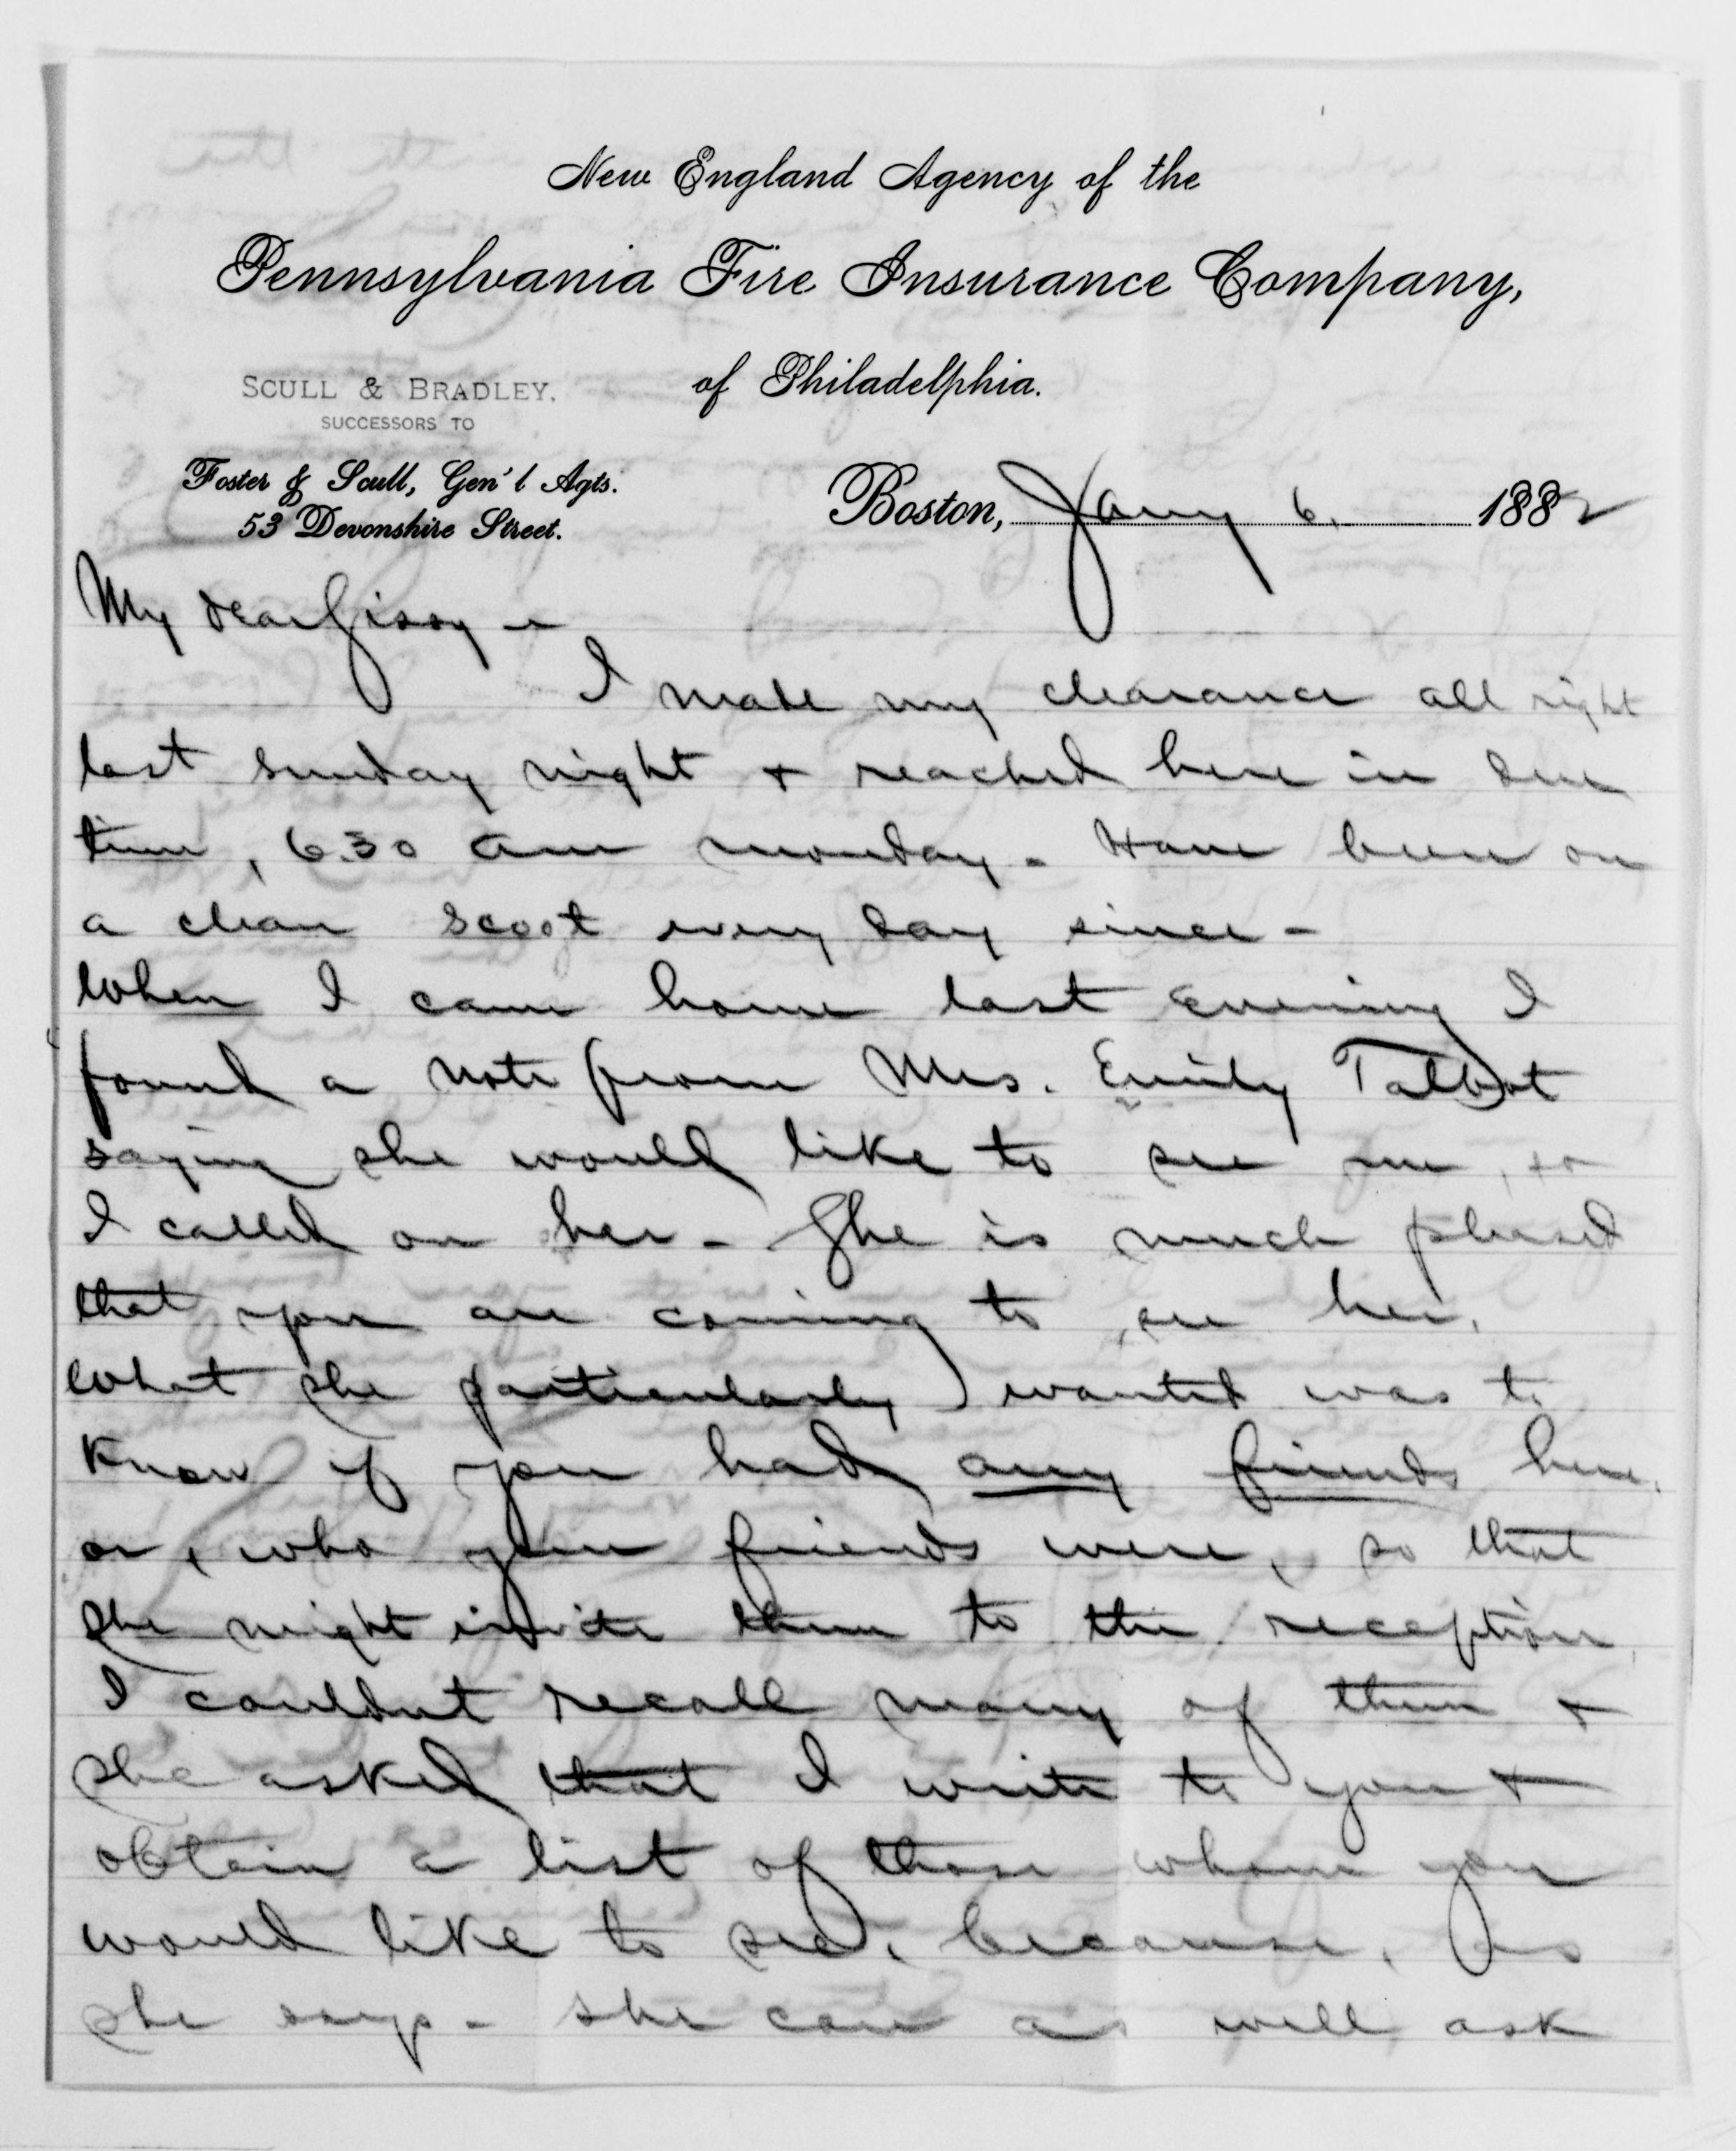 New England Agency of the
Pennsylvania Fire Insurance Company,
of Philadelphia.
SCULL & BRADLEY.
SUCCESSORS TO
Foster & Scull, Gen'l Agts.
53 Devonshire Street.
Boston, Jany 6. 1882
My dear Sissy -
I made my clearance all right
last Sunday night & reached here in due
time, 6.30 am Monday - Have been on
a clean scoot every day since -
When I came home last evening I
found a note from Mrs. Emily Talbot
saying she would like to see me, so
I called on her - She is much pleased
that you are coming to see her.
What she particularly wanted was to
know if you had any friends here,
or, who your friends were, so that
she might invite them to the reception
I couldnt recall many of them &
she asked that I write to you &
obtain a list of those whom you
would like to see, because, as
she says - she can as well ask